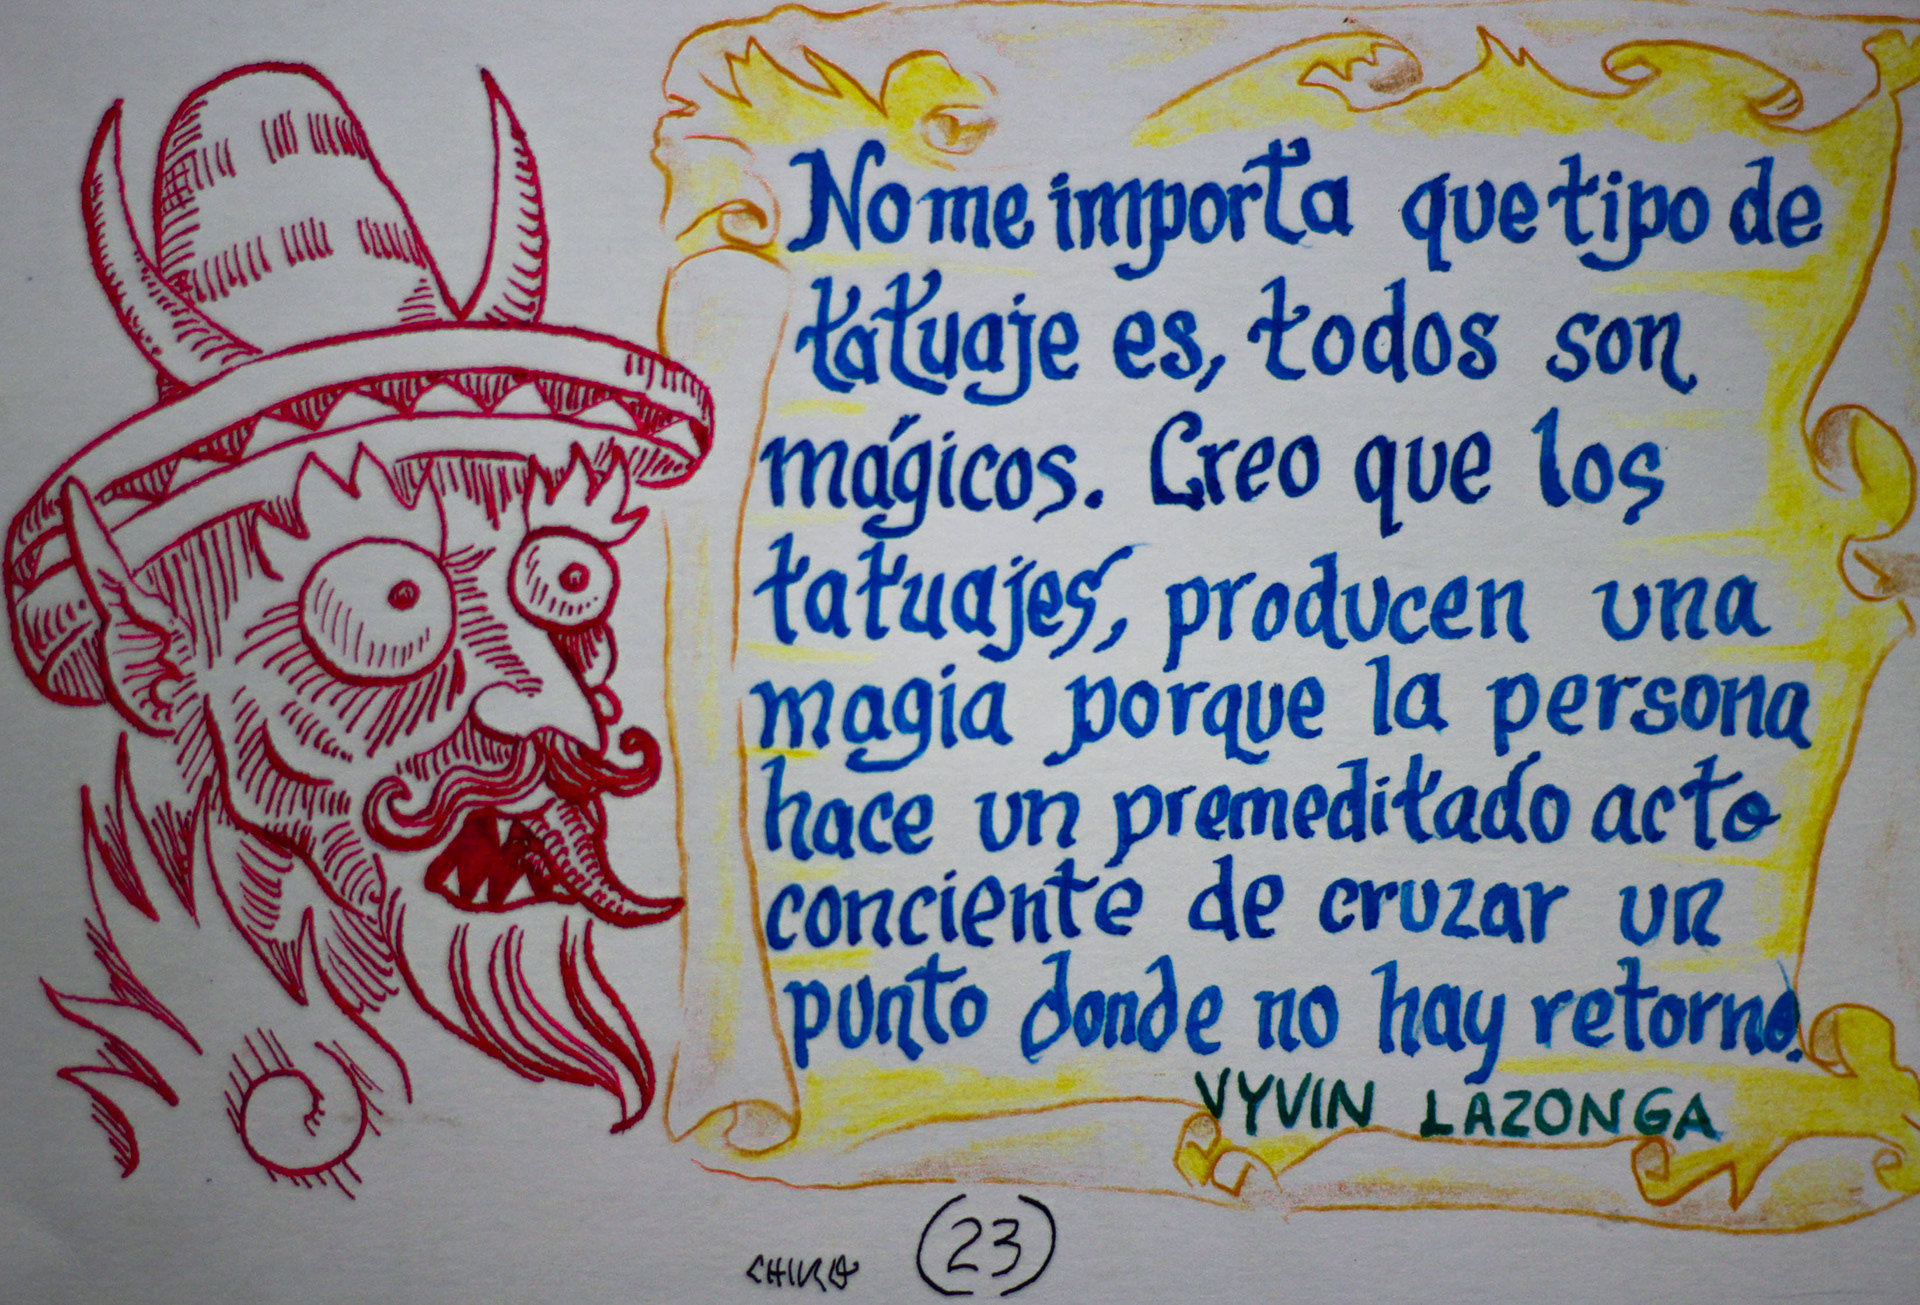 No me importa que tipo de
tatuaje es, todos son
mágicos. Creo que los
tatuajes, producen una
magia porque la persona
hace un premeditado acto
conciente de cruzar un
punto donde no hay retorno.
VYVIN LAZONGA
(23)